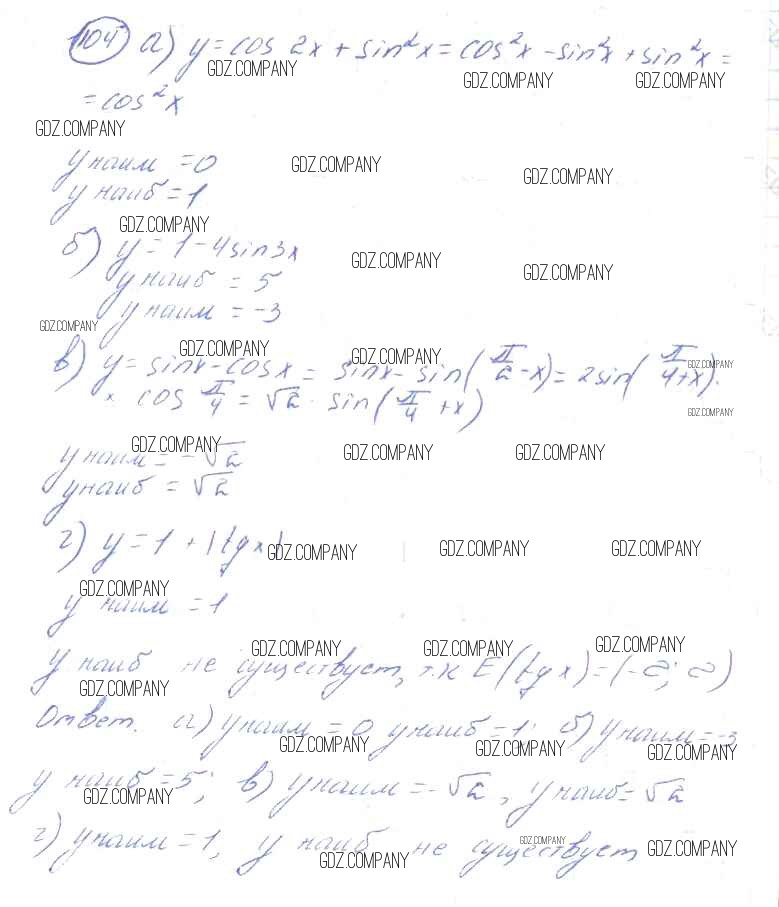 104 а) y = cos 2x + sin²x = cos²x - sin²x + sin²x =
GDZ.COMPANY GDZ.COMPANY GDZ.COMPANY
= cos²x
GDZ.COMPANY
y наим = 0
GDZ.COMPANY GDZ.COMPANY
y наиб = 1
GDZ.COMPANY
б) y = 1 - 4sin3x
GDZ.COMPANY GDZ.COMPANY
y наиб = 5
y наим = -3
GDZ.COMPANY
GDZ.COMPANY GDZ.COMPANY GDZ.COMPANY
в) y = sinx - cosx = sinx - sin(π/2 - x) = 2sin(π/4 + x).
× cos π/4 = √2 · sin(π/4 + x)
GDZ.COMPANY
GDZ.COMPANY GDZ.COMPANY GDZ.COMPANY
y наим = -√2
y наиб = √2
г) y = 1 + |tgx|
GDZ.COMPANY GDZ.COMPANY GDZ.COMPANY
GDZ.COMPANY
y наим = 1
GDZ.COMPANY GDZ.COMPANY GDZ.COMPANY
y наиб не существует, т.к E(tgx) = (-∞; ∞)
GDZ.COMPANY
Ответ. а) y наим = 0 y наиб = 1; б) y наим = -3
GDZ.COMPANY GDZ.COMPANY GDZ.COMPANY
y наиб = 5; в) y наим = -√2, y наиб = √2
GDZ.COMPANY
г) y наим = 1, y наиб не существует
GDZ.COMPANY GDZ.COMPANY GDZ.COMPANY